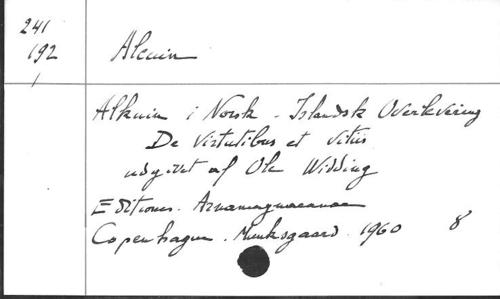 241
192
Alcuin
Alkuin i Norsk - Islandsk Overlevering
De Virtutibus et Vitiis
udgivet af Ole Widding
Editiones. Arnamagnaeanae
Copenhague. Munksgaard. 1960 8